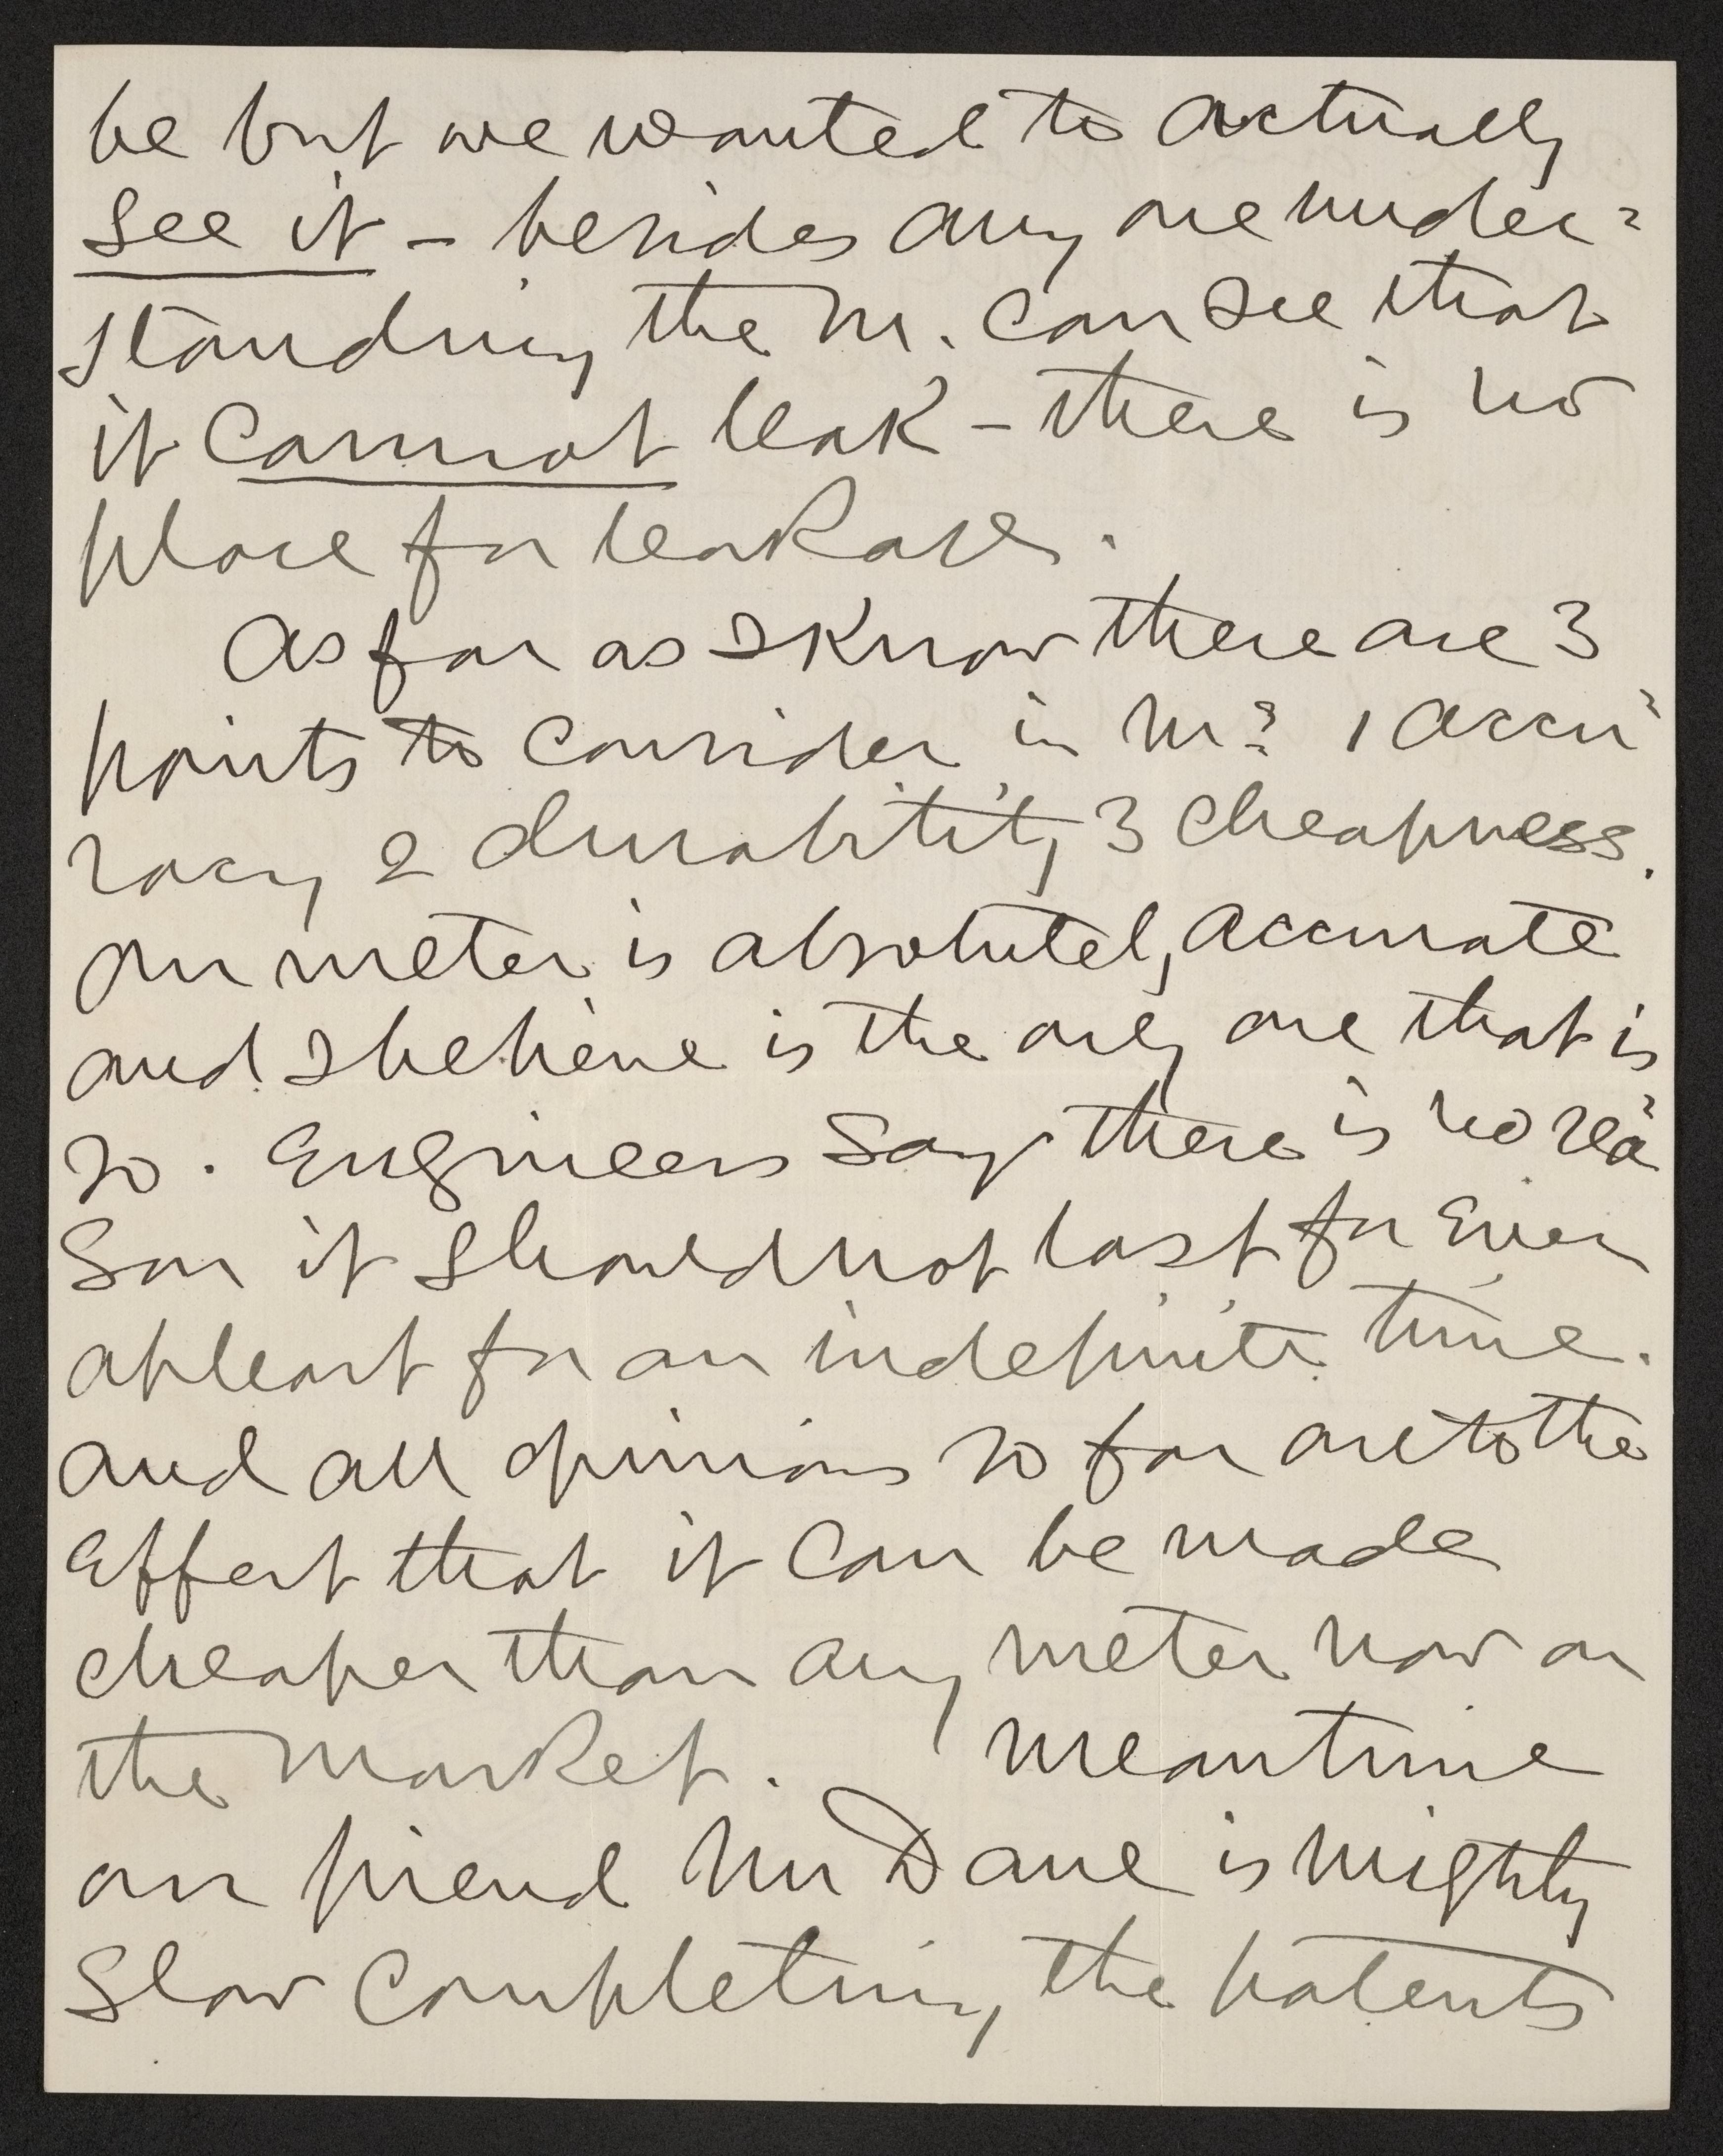 be but we wanted to actually
see it – besides any one under=
standing the m. can see that
it cannot leak – there is no
place for leakage.
As far as I know there are 3
points to consider in m? 1 accu=
racy 2 durability 3 cheapness.
Our meter is absolutely accurate
and I believe is the only one that is
so. Engineers say there is no rea=
son it should not last for ever
at least for an indefinite time.
and all opinions so far are to the
effect that it can be made
cheaper than any meter now on
the market. Meantime
our friend Mr Dane is mighty
slow completing the patents